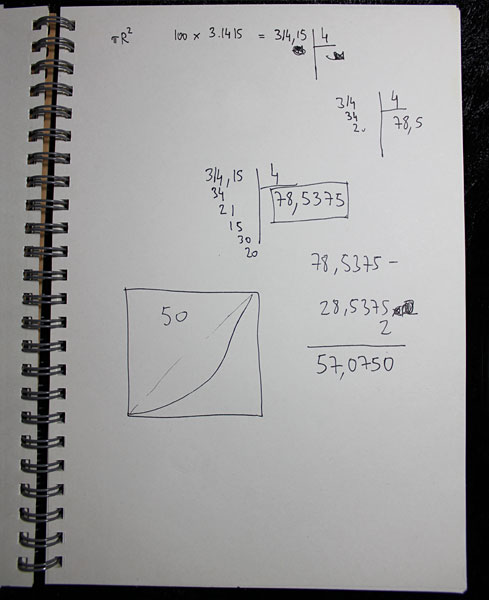 πR² 100 × 3.1415 = 314,15 4
314 4
34 78,5
20
314,15 4
34 78,5375
21
15
30
20
78,5375 −
50 28,5375
2
57,0750